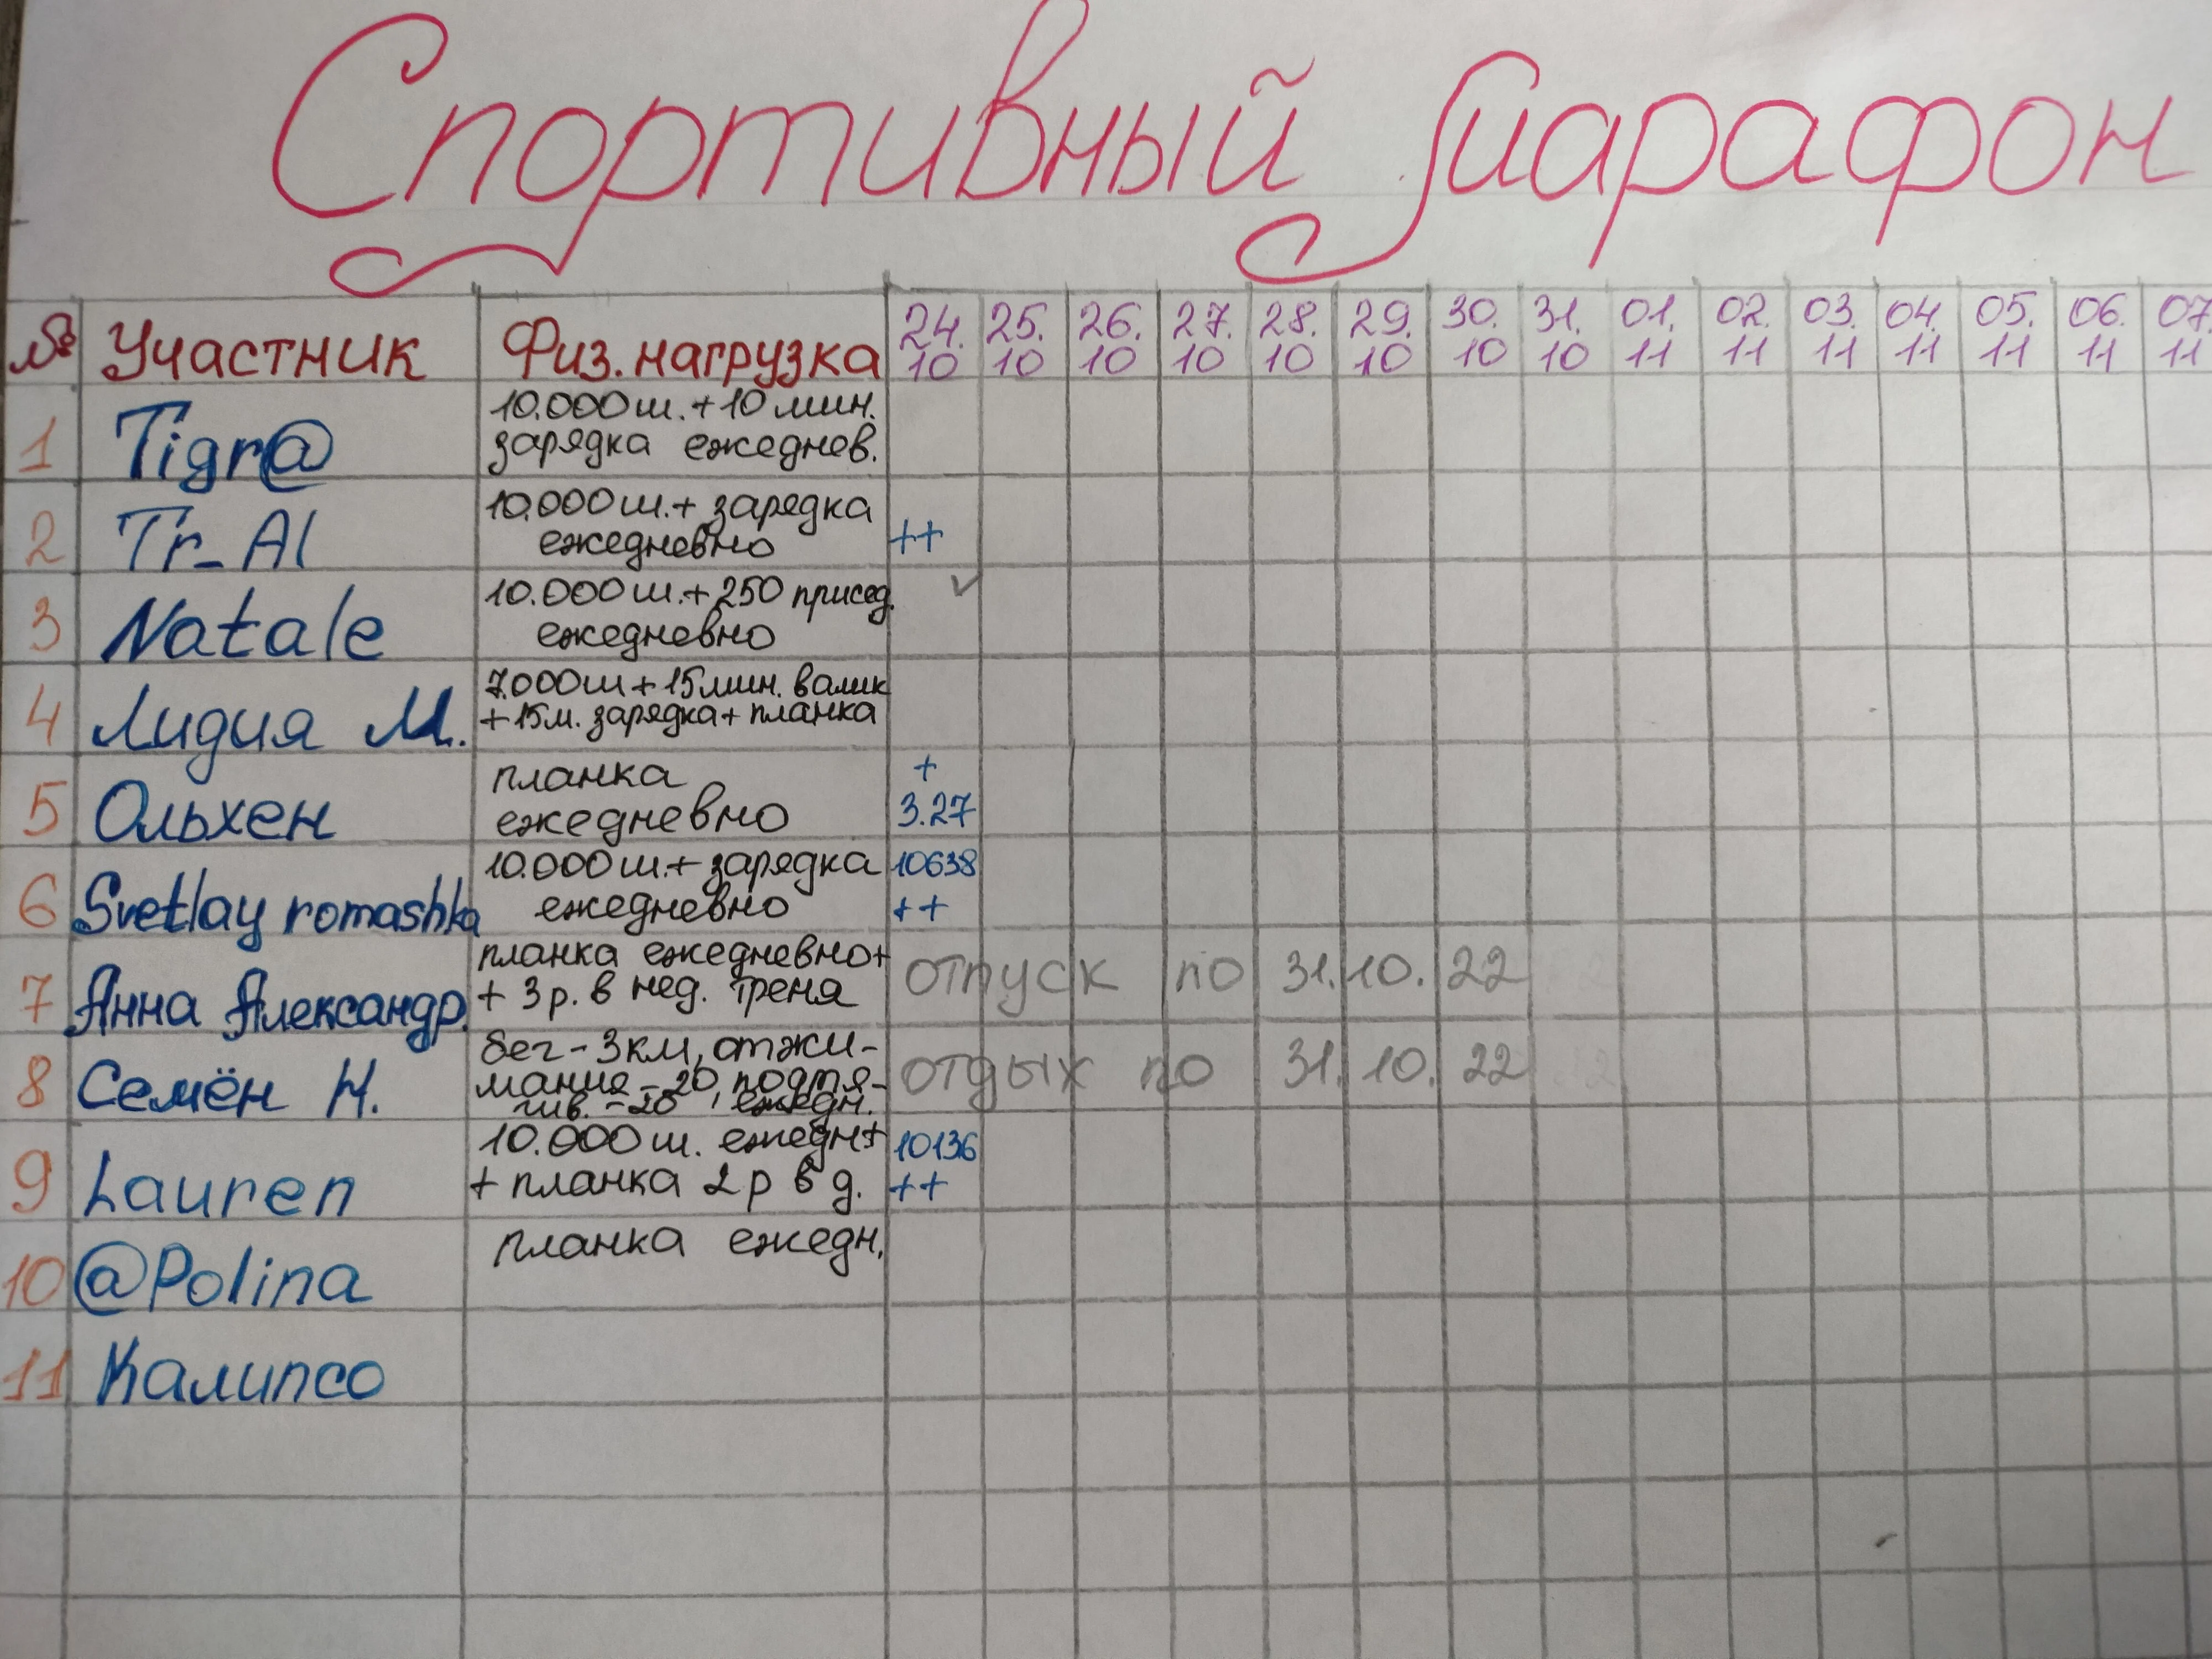 Спортивный марафон
№ Участник Физ. нагрузка 24.10 25.10 26.10 27.10 28.10 29.10 30.10 31.10 01.11 02.11 03.11 04.11 05.11 06.11 07.11
1 Tigr@ 10.000 ш. + 10 мин.
зарядка ежеднев.
2 Tr_Al 10.000 ш. + зарядка
ежедневно ++
3 Natale 10.000 ш. + 250 присед. ✓
ежедневно
4 Лидия М. 7.000 ш + 15 мин. валик
+ 15 м. зарядка + планка
5 Ольхен планка +
ежедневно 3.27
6 Svetlay romashka 10.000 ш. + зарядка 10638
ежедневно ++
7 Анна Александр. планка ежедневно +
+ 3 р. в нед. треня отпуск по 31.10.22
8 Семён Н. бег - 3 км, отжи-
мания - 20, подтя- отдых по 31.10.22
гив. - 20, ежедн.
9 Lauren 10.000 ш. ежедн + 10136
+ планка 2 р в д. ++
10 @Polina планка ежедн.
11 Калипсо